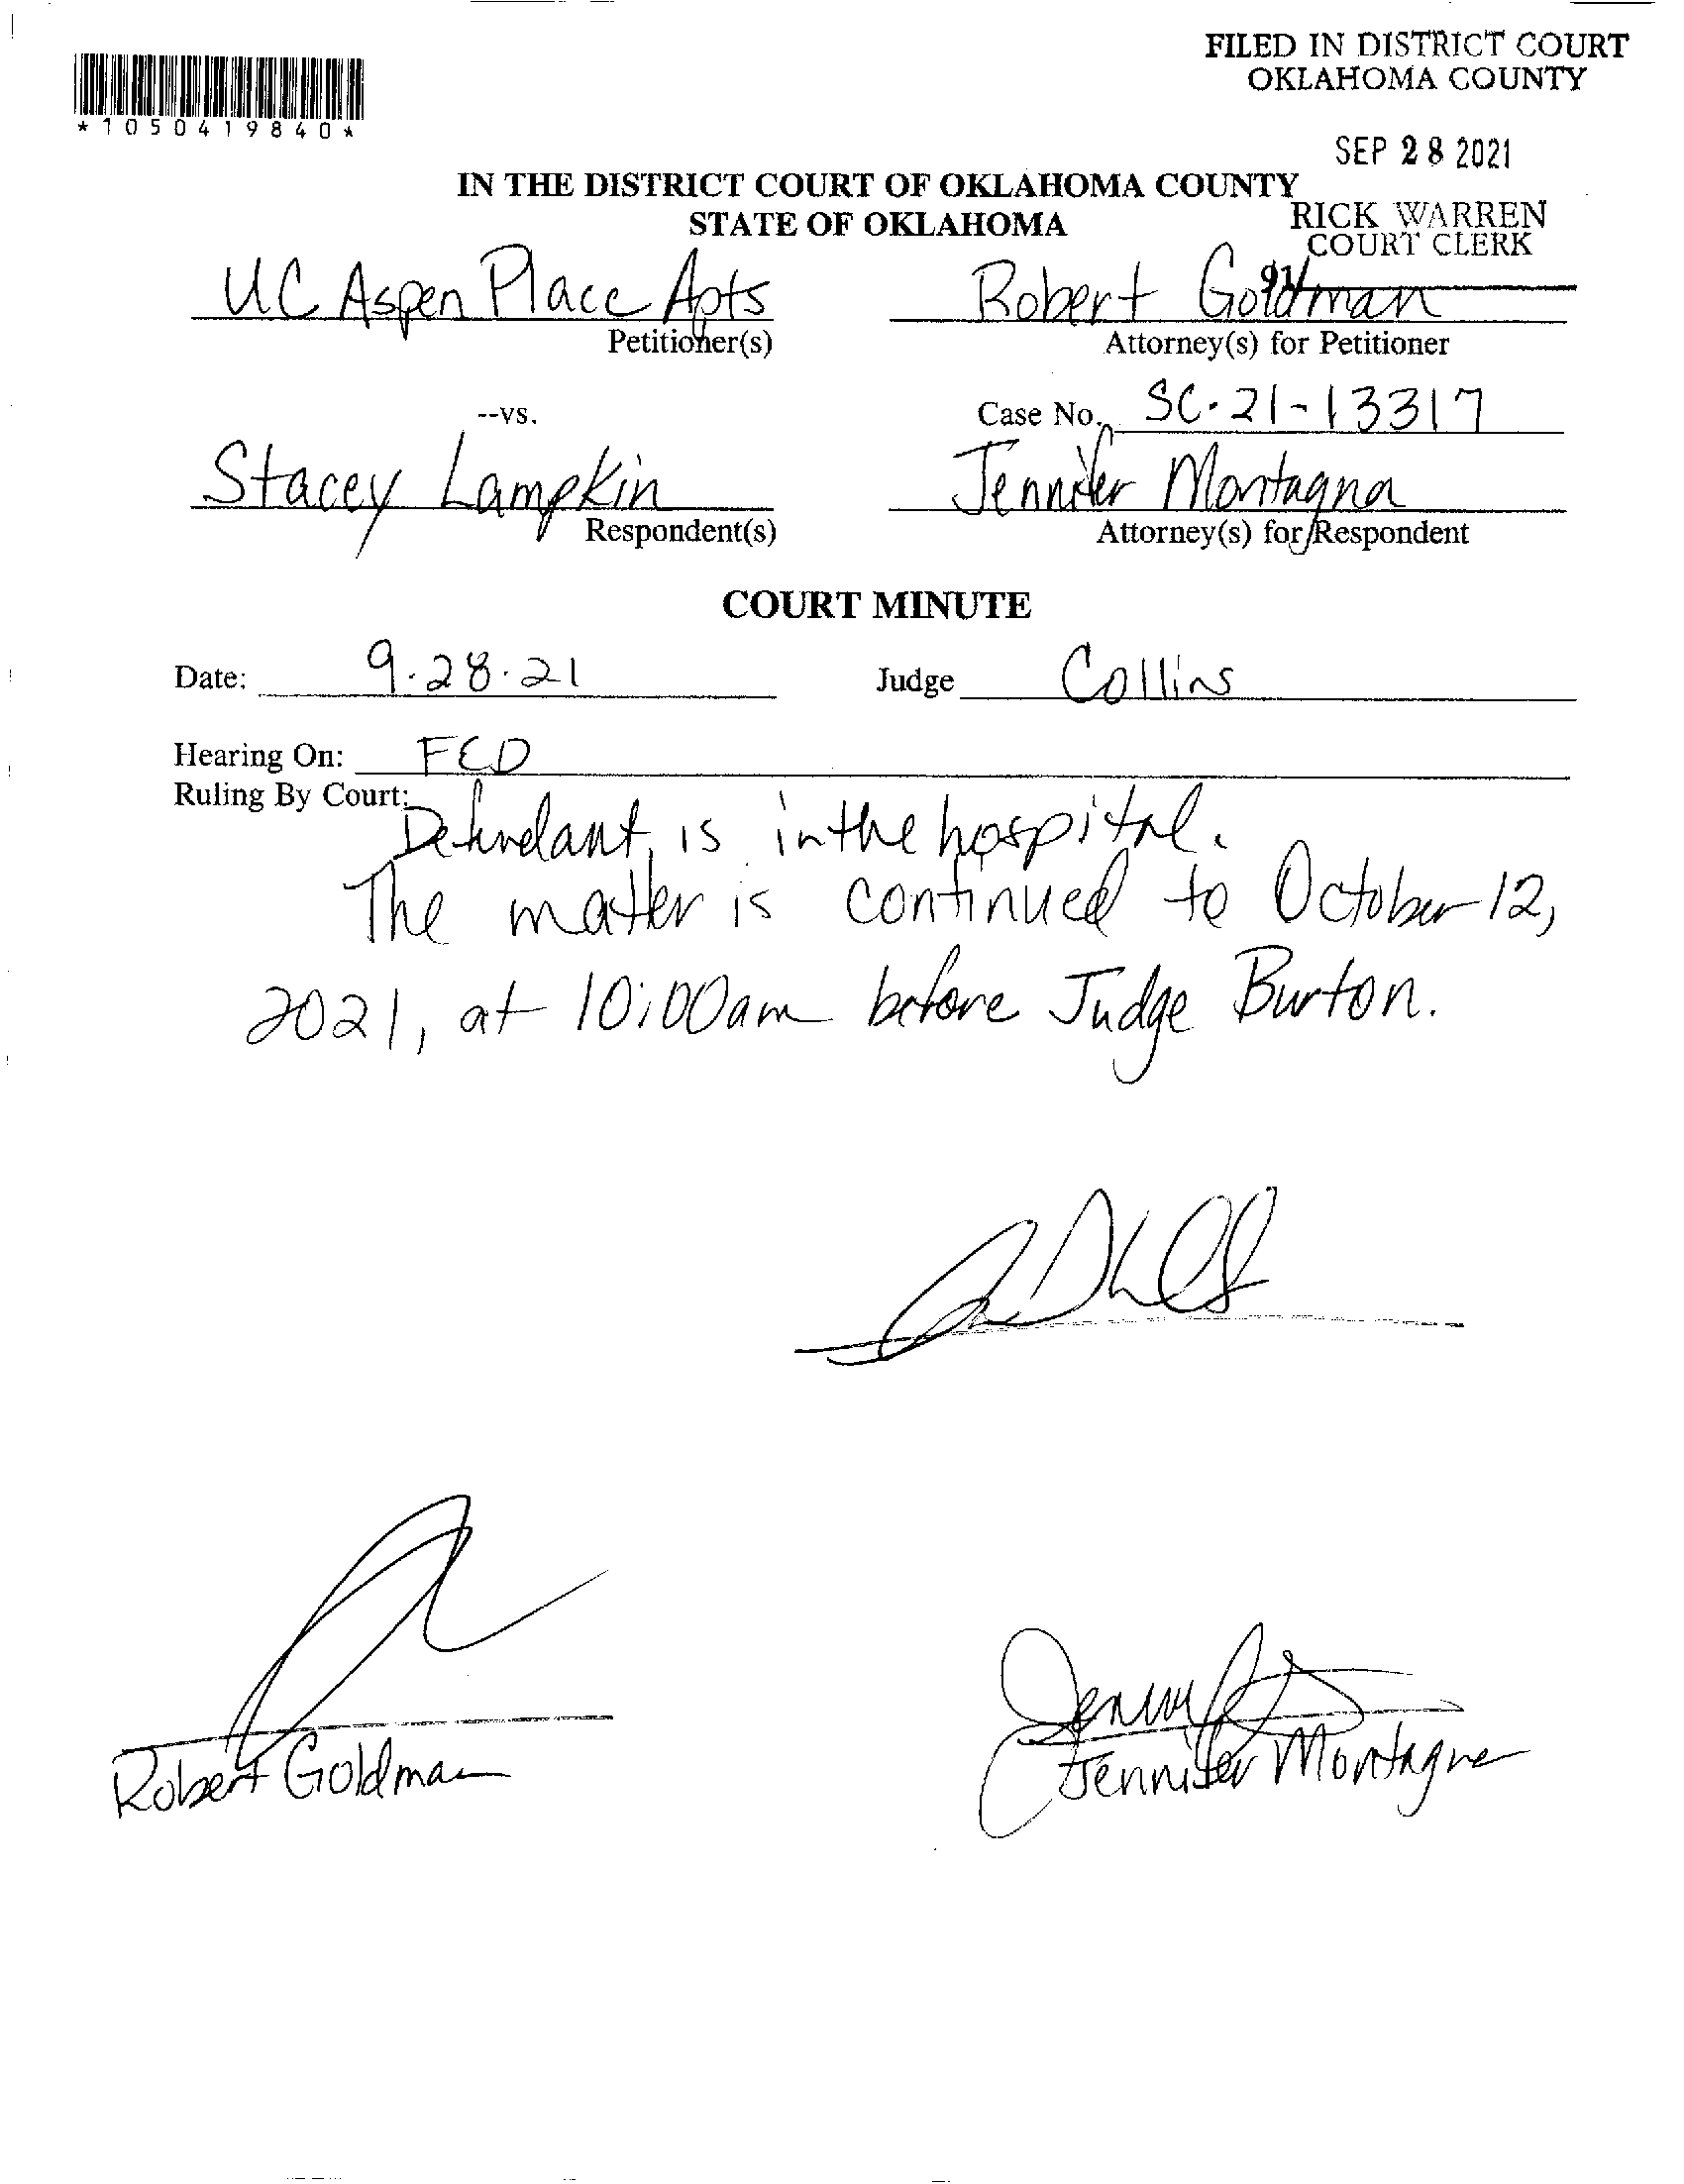 FILED IN DISTRICT COURT
OKLAHOMA COUNTY
*1050419840*
SEP 28 2021
IN THE DISTRICT COURT OF OKLAHOMA COUNTY
STATE OF OKLAHOMA
RICK WARREN
COURT CLERK
UC Aspen Place Apts
Petitioner(s)
Robert Goldman
Attorney(s) for Petitioner
--vs.
Case No. SC-21-13317
Stacey Lampkin
Respondent(s)
Jennifer Montagna
Attorney(s) for Respondent
COURT MINUTE
Date: 9.28.21
Judge Collins
Hearing On: FED
Ruling By Court:
Defendant is in the hospital.
The matter is continued to October 12,
2021, at 10:00am before Judge Burton.
Robert Goldman
Jennifer Montagna